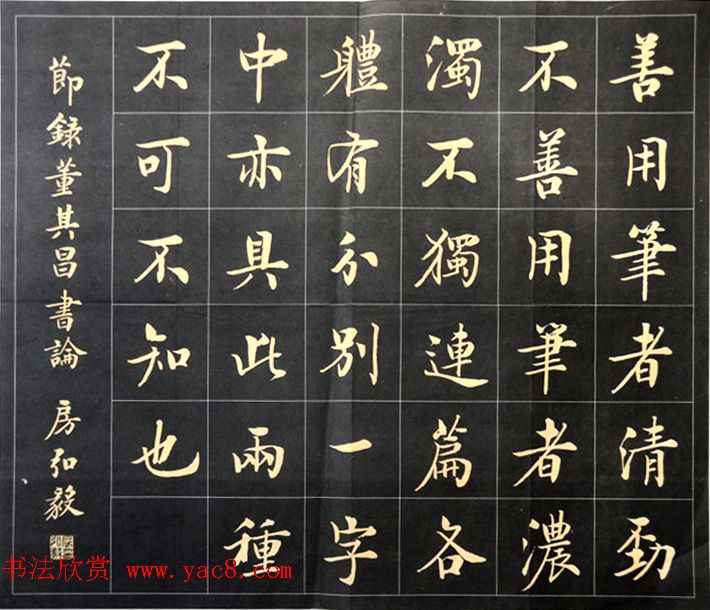 善用筆者清勁
不善用筆者濃
濁不獨連篇各
體有分別一字
中亦具此兩種
不可不知也
節錄董其昌書論 房弘毅
书法欣赏 www.yac8.com